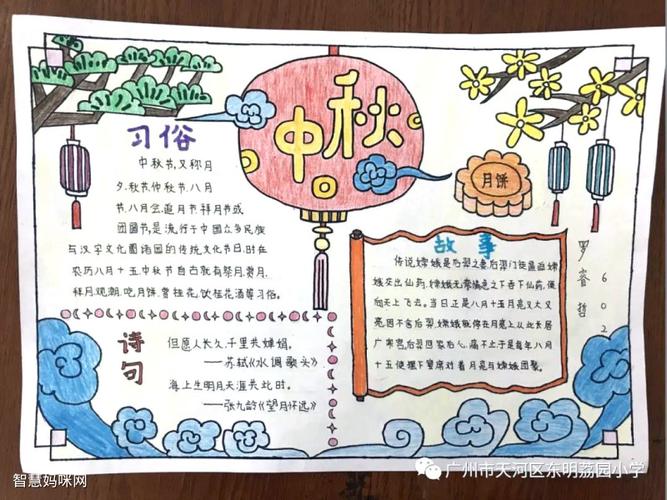 中秋
习俗
中秋节,又称月
夕,秋节,仲秋节,八月
节,八月会,追月节,拜月节或
团圆节,是流行于中国众多民族
与汉字文化圈诸国的传统文化节日,时在
农历八月十五中秋节自古就有祭月,赏月,
拜月,观潮,吃月饼,赏桂花,饮桂花酒等习俗。
月饼
故事
传说,嫦娥是后羿之妻,后羿门徒逼迫嫦
娥交出仙药,嫦娥无奈情急之下吞下仙药,便
向天上飞去。当日正是八月十五月亮又大又
亮因不舍后羿,嫦娥就停在月亮上,从此长居
广寒宫,后羿回家后心痛不止于是每年八月
十五便摆下宴席对着月亮与嫦娥团聚。
罗睿哲
602
诗句
但愿人长久,千里共婵娟。
——苏轼《水调歌头》
海上生明月天涯共此时。
——张九龄《望月怀远》
智慧妈咪网
广州市天河区东明荔园小学